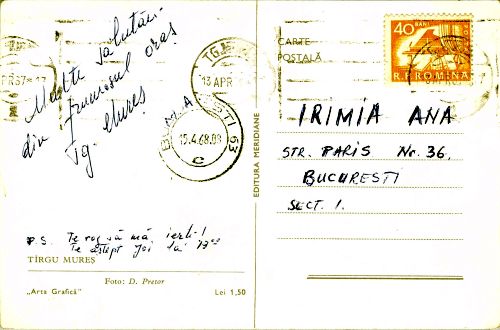 Multe salutări
din frumosul oraș
Tg. Mureș
P.S. Te rog să mă ierți!
Te aștept Joi
TÎRGU MUREȘ
Foto: D. Pretor
„Arta Grafică”
Lei 1,50
EDITURA MERIDIANE
TG.
13 APR
BUCUREȘTI 63
15.4.68.09
C
CARTE
POSTALĂ
40 BANI
R.P. ROMINA
IRIMIA ANA
STR. PARIS Nr. 36.
BUCURESTI
SECT. 1.